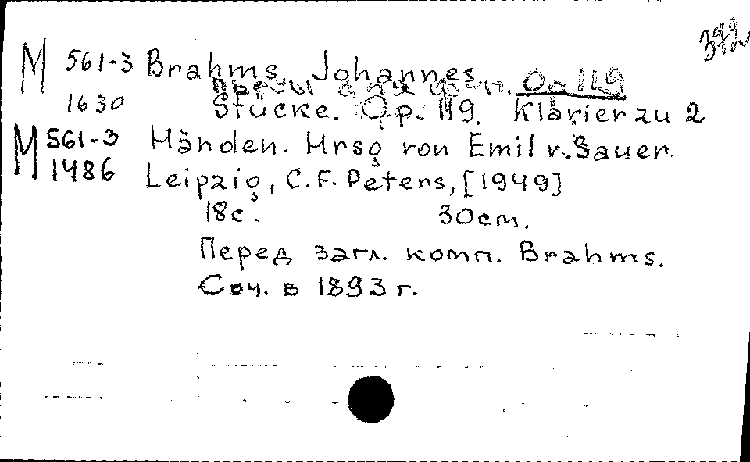 392
М 561-3 Brahms, Johannes
Op. 119
1630 Stücke. Op. 119. Klavier zu 2
М 561-3 Händen. Hrsg von Emil v. Sauer.
1486 Leipzig, C. F. Peters, [1949]
18 с. 30 cm.
Перед загл. комп. Brahms.
Соч. в 1893 г.